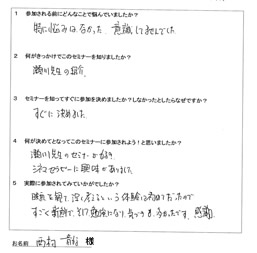 1 参加される前にどんなことで悩んでいましたか？
特に悩みはなかった、意識してませんでした
2 何がきっかけでこのセミナーを知りましたか？
瀬川先生の紹介
3 セミナーを知ってすぐに参加を決めましたか？しなかったとしたらなぜですか？
すぐに決めました
4 何が決めてとなってこのセミナーに参加されよう！と思いましたか？
瀬川先生のセミナーが好き
シネマセラピーに興味がありました
5 実際に参加されてみていかがでしたか？
映画を観て、深く考えるという体験は初めてだったので
すごく新鮮で、そして勉強になり、気づきも多かったです。感謝
お名前 西村 様